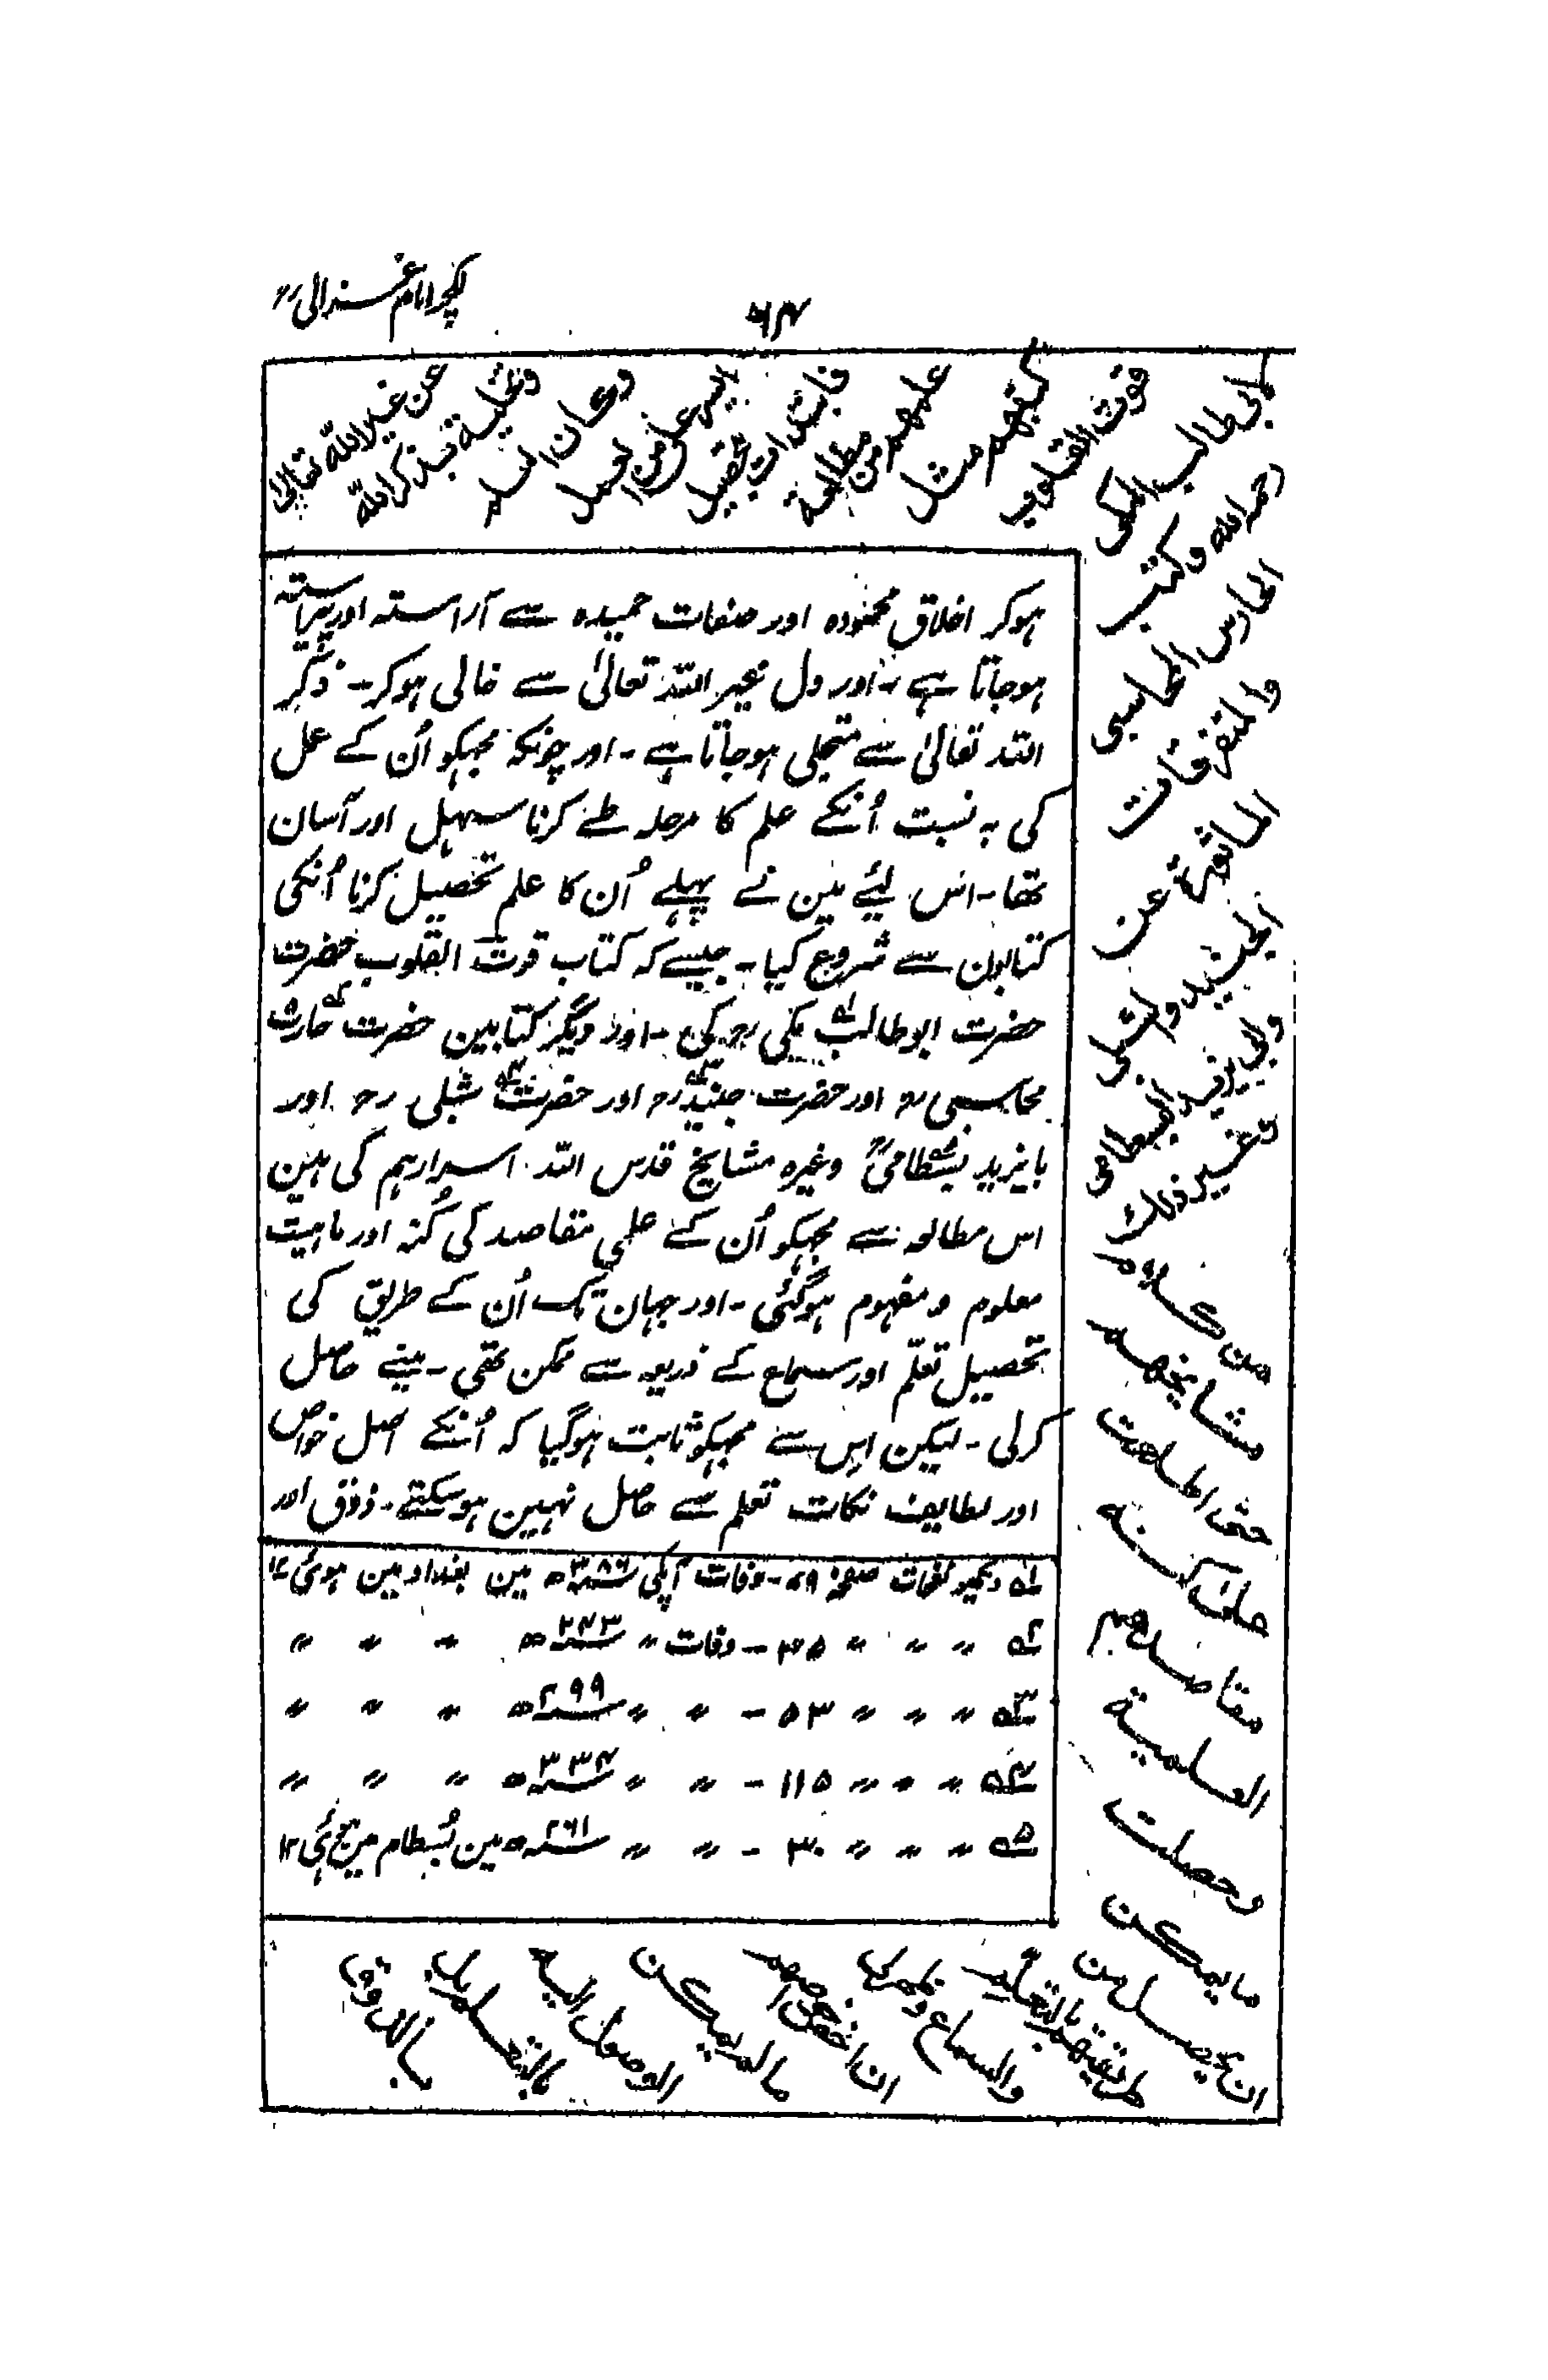 ۶۴
لکچر امام غزالی رح
عن غیر الله تعالی
وتحلیته بذکر الله
وکان العلم
ایسر علی من العمل
فابتدات بتحصیل
علمهم من مطالعة
کتبهم مثل
قوت القلوب
لابی طالب المکی
رحمه الله وکتب
الحارث المحاسبی
والمتفرقات
الماثورة عن
الجنید والشبلی
وابی یزید البسطامی
وغیر ذلك
من کلام
مشایخهم
حتی اطلعت
علی کنه
مقاصدهم
العلمیة
وحصلت
ما یمکن
ان یحصل من
طریقتهم بالتعلم
والسماع وظهر لی
ان اخص خواصهم
ما لم یمکن
الوصول الیه
بالتعلم بل
بالذوق
ہوکر اخلاق محمودہ اور صفات حمیدہ سے آراستہ اور پیراستہ
ہوجاتا ہے ۔ اور دل غیر اللہ تعالیٰ سے خالی ہوکر ۔ ذکر
اللہ تعالیٰ سے متجلی ہوجاتا ہے ۔ اور چونکہ مجہکو اُن کے عمل
کی بہ نسبت اُنکے علم کا مرحلہ طے کرنا سہل اور آسان
تھا ۔ اس لیئے مین نے پہلے اُن کا علم تحصیل کرنا اُنکی
کتابون سے شروع کیا ۔ جیسے کہ کتاب قوت القلوب حضرت
حضرت ابوطالب؂۱ مکی رح کی ۔ اور دیگر کتابین حضرت؂۲ حارث
محاسبی رح اور حضرت جنید؂۳ رح اور حضرت؂۴ شبلی رح اور
بایزید بسطامی؂۵ رح وغیرہ مشایخ قدس اللہ اسرارہم کی ہین
اس مطالعہ سے مجہکو اُن کے علمی مقاصد کی کُنہ اور ماہیت
معلوم و مفہوم ہوگئی ۔ اور جہان تک اُن کے طریق کی
تحصیل تعلّم اور سماع کے ذریعہ سے ممکن تھی ۔ مینے حاصل
کرلی ۔ لیکن اِس سے مجہکو ثابت ہوگیا کہ اُنکے اصل خواص
اور لطایف نکات تعلم سے حاصل نہین ہوسکتے ۔ ذوق اور
؂۱ دیکہو نفحات صفحہ ۷۹ ۔ وفات آپکی ۳۸۶ سنہ ھ مین بغداد مین ہوئی ۱۲
؂۲ " " " ۳۵ ۔ وفات " ۲۴۳ سنہ ھ " " "
؂۳ " " " ۵۳ ۔ " " ۲۹۹ سنہ ھ " " "
؂۴ " " " ۱۱۵ ۔ " " ۳۳۴ سنہ ھ " " "
؂۵ " " " ۳۰ ۔ " " ۲۶۱ سنہ ھ مین بُسطام مین ہوئی ۱۲